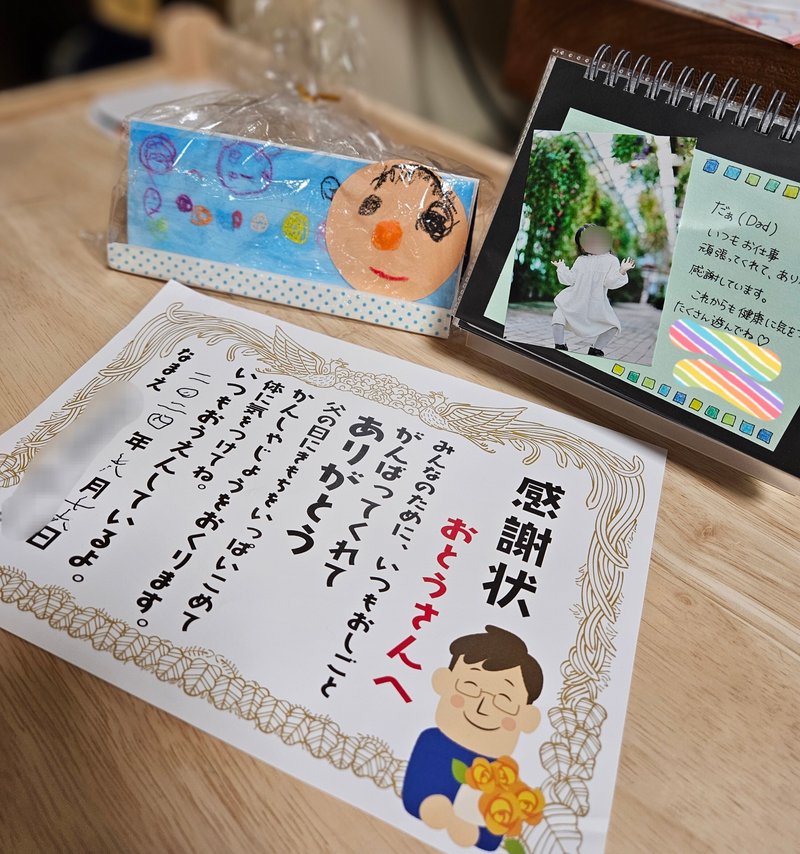 だぁ(Dad)
いつもお仕事
頑張ってくれて、あり
感謝しています。
これからも健康に気を
たくさん遊んでね♡
感謝状
おとうさんへ
みんなのために、いつもおしごと
がんばってくれて
ありがとう
父の日にきもちをいっぱいこめて
かんしゃじょうをおくります。
体に気をつけてね。
いつもおうえんしているよ。
二〇二四年六月十六日
なまえ